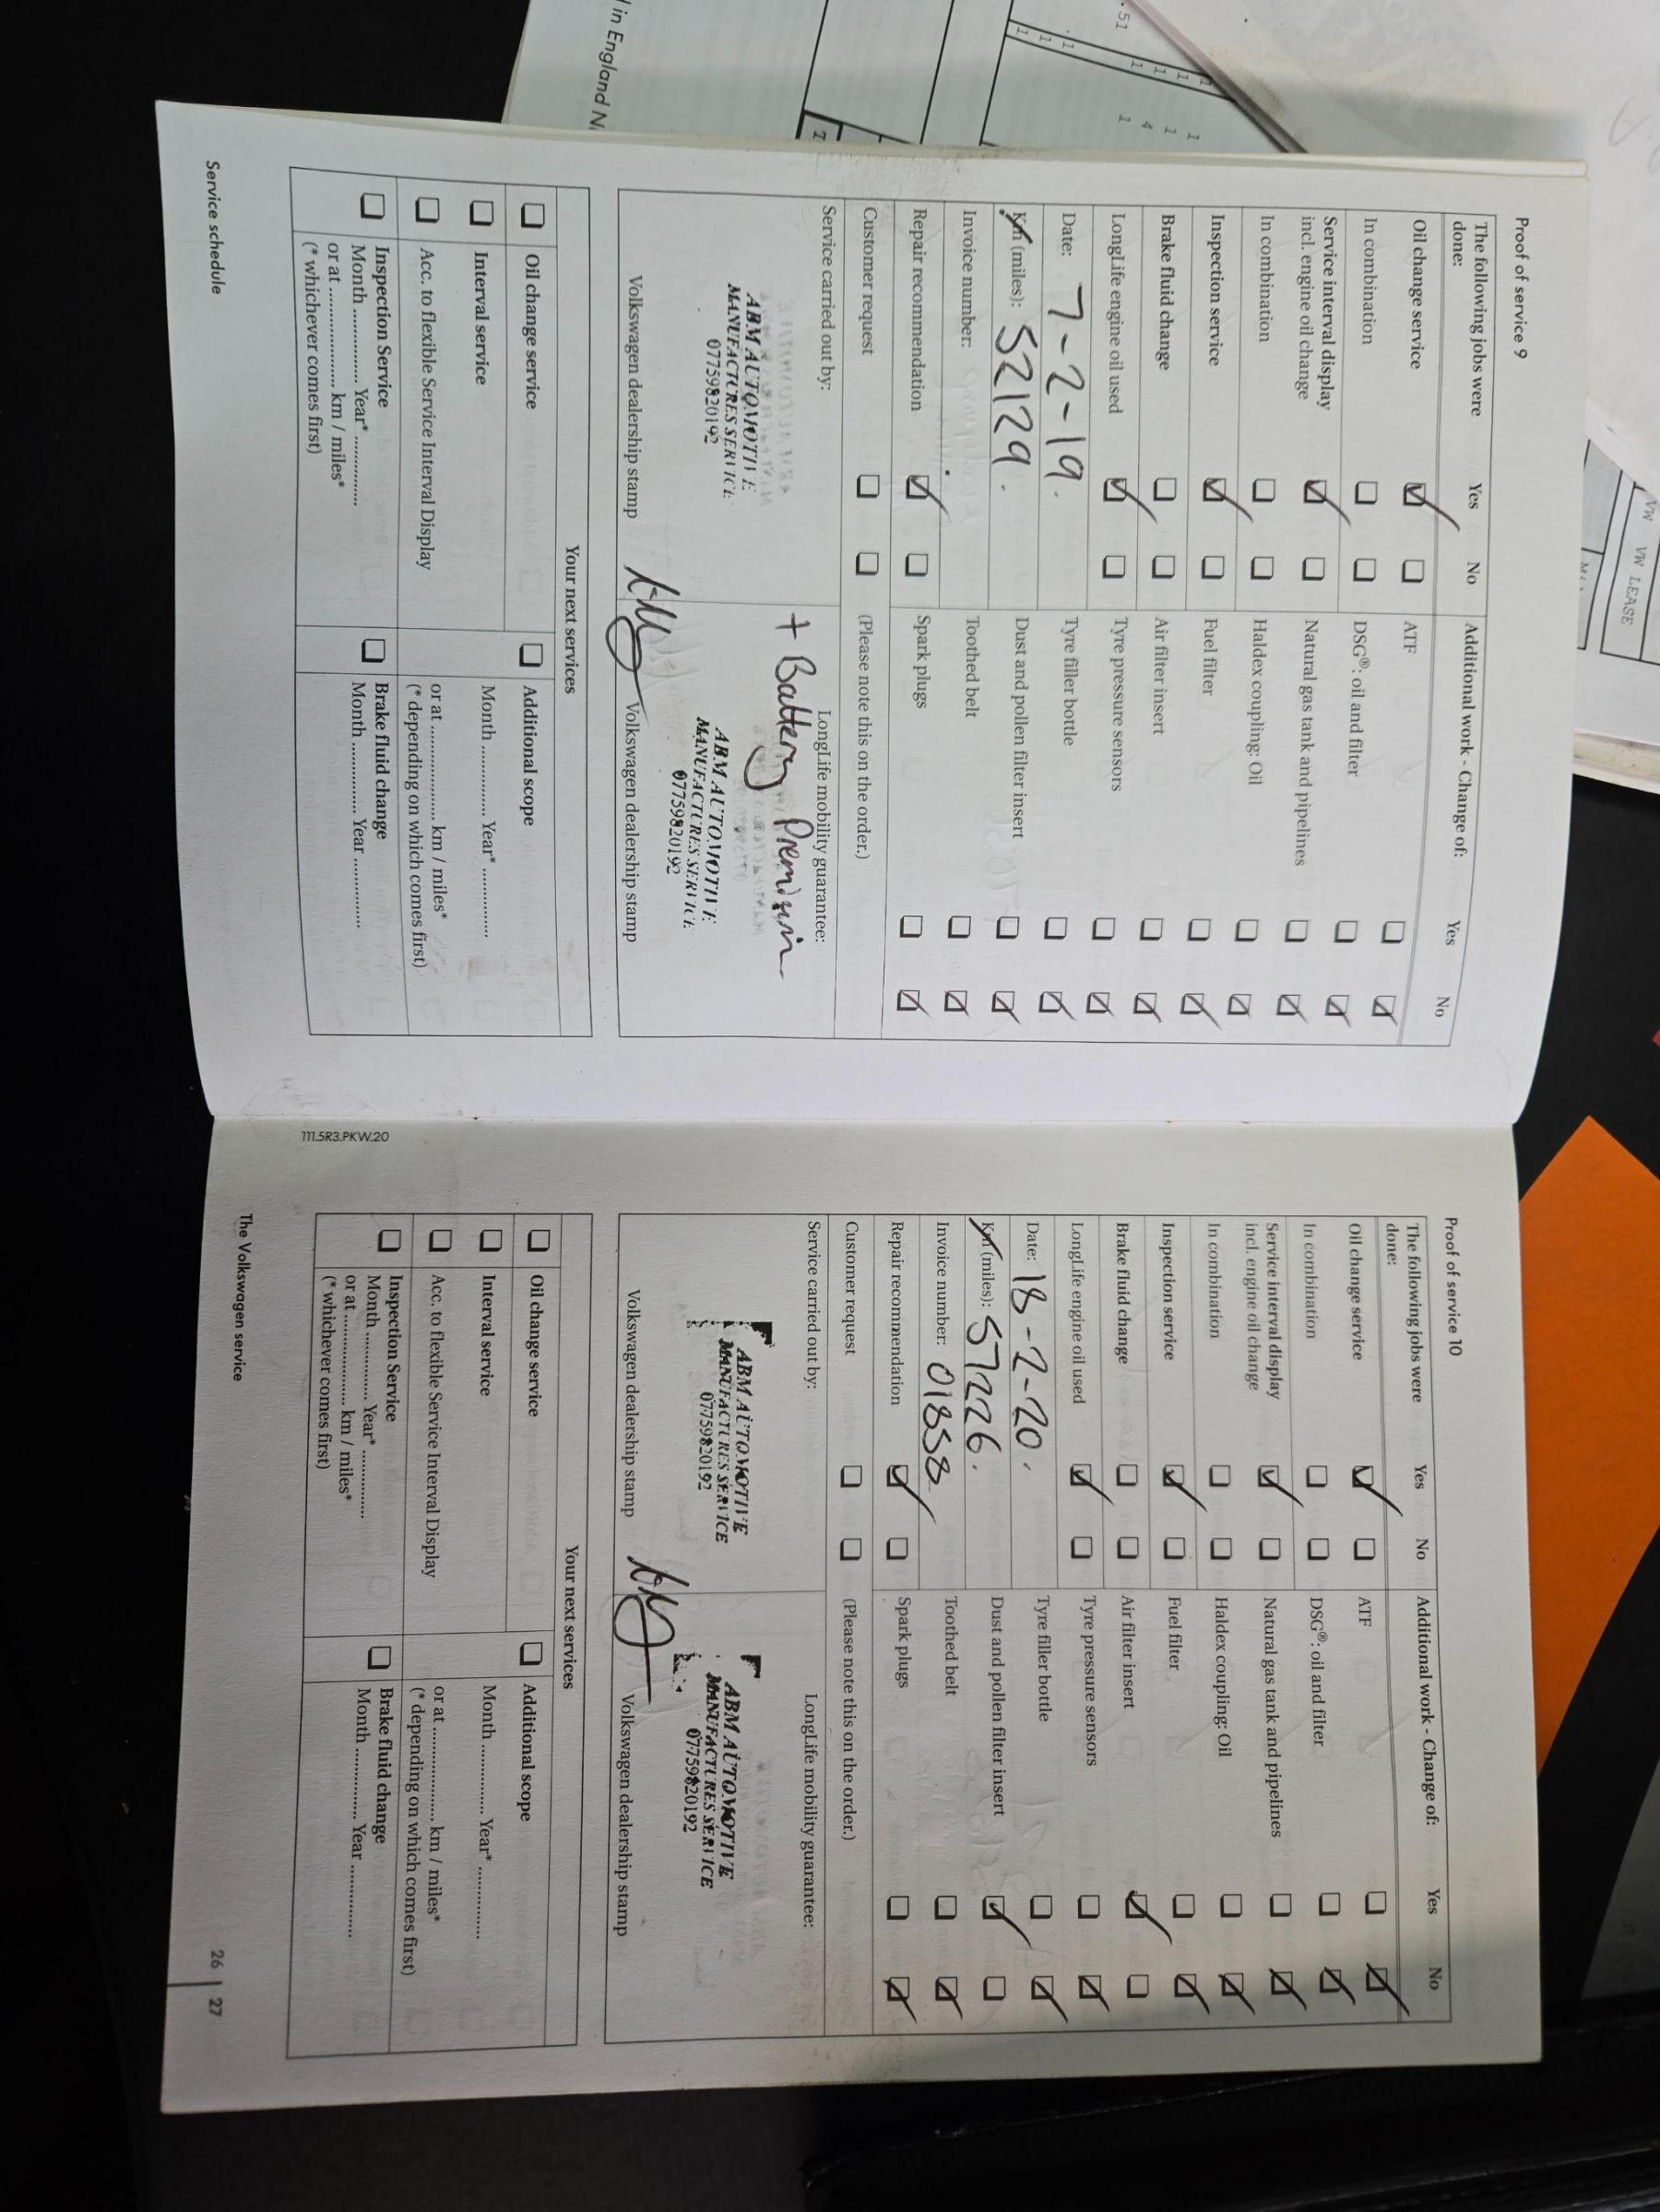 Proof of service 9
The following jobs were done: Yes No Additional work - Change of: Yes No
Oil change service ☑ ☐ ATF ☐ ☑
In combination ☐ ☐ DSG®: oil and filter ☐ ☑
Service interval display incl. engine oil change ☑ ☐ Natural gas tank and pipelines ☐ ☑
In combination ☐ ☐ Haldex coupling: Oil ☐ ☑
Inspection service ☑ ☐ Fuel filter ☐ ☑
Brake fluid change ☐ ☐ Air filter insert ☐ ☑
LongLife engine oil used ☑ ☐ Tyre pressure sensors ☐ ☑
Date: 7-2-19. Tyre filler bottle ☐ ☑
Km (miles): 52129. Dust and pollen filter insert ☐ ☑
Invoice number: Toothed belt ☐ ☑
Repair recommendation ☑ ☐ Spark plugs ☐ ☑
Customer request ☐ ☐ (Please note this on the order.)
Service carried out by: LongLife mobility guarantee:
+ Battery Premium
ABM AUTOMOTIVE
MANUFACTURES SERVICE
07759820192
ABM AUTOMOTIVE
MANUFACTURES SERVICE
07759820192
Volkswagen dealership stamp Volkswagen dealership stamp
Your next services
☐ Oil change service ☐ Additional scope
☐ Interval service Month ............ Year* ............
☐ Acc. to flexible Service Interval Display or at .................. km / miles*
(* depending on which comes first)
☐ Inspection Service ☐ Brake fluid change
Month ............ Year* ............ Month ............ Year ............
or at .................. km / miles*
(* whichever comes first)
Service schedule
111.5R3.PKW.20
Proof of service 10
The following jobs were done: Yes No Additional work - Change of: Yes No
Oil change service ☑ ☐ ATF ☐ ☑
In combination ☐ ☐ DSG®: oil and filter ☐ ☑
Service interval display incl. engine oil change ☑ ☐ Natural gas tank and pipelines ☐ ☑
In combination ☐ ☐ Haldex coupling: Oil ☐ ☑
Inspection service ☑ ☐ Fuel filter ☐ ☑
Brake fluid change ☐ ☐ Air filter insert ☑ ☐
LongLife engine oil used ☑ ☐ Tyre pressure sensors ☐ ☑
Date: 18-2-20. Tyre filler bottle ☐ ☑
Km (miles): 57226. Dust and pollen filter insert ☑ ☐
Invoice number: 01858 Toothed belt ☐ ☑
Repair recommendation ☑ ☐ Spark plugs ☐ ☑
Customer request ☐ ☐ (Please note this on the order.)
Service carried out by: LongLife mobility guarantee:
ABM AUTOMOTIVE
MANUFACTURES SERVICE
07759820192
ABM AUTOMOTIVE
MANUFACTURES SERVICE
07759820192
Volkswagen dealership stamp Volkswagen dealership stamp
Your next services
☐ Oil change service ☐ Additional scope
☐ Interval service Month ............ Year* ............
☐ Acc. to flexible Service Interval Display or at .................. km / miles*
(* depending on which comes first)
☐ Inspection Service ☐ Brake fluid change
Month ............ Year* ............ Month ............ Year ............
or at .................. km / miles*
(* whichever comes first)
The Volkswagen service 26 | 27
in England
VW VW LEASE
51